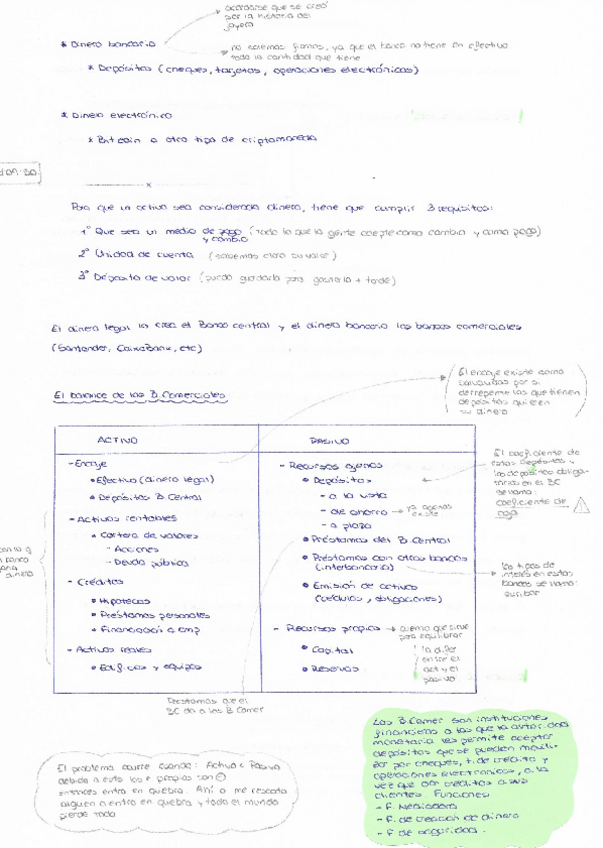 acordarse que se creó
por la historia del
joyero
* Dinero bancario
no seremos firmes, ya que el banco no tiene en efectivo
toda la cantidad que tiene
* Depósitos (cheques, tarjetas, operaciones electrónicas)
* Dinero electrónico
* Bitcoin o otro tipo de criptomoneda
Para que un activo sea considerado dinero, tiene que cumplir 3 requisitos:
1º Que sea un medio de pago (todo lo que la gente acepte como cambio y como pago)
y cambio
2º Unidad de cuenta (sabemos claro su valor)
3º Depósito de valor (puedo guardarla para gastarla + tarde)
El dinero legal lo crea el Banco central y el dinero bancario los bancos comerciales
(Santander, CaixaBank, etc)
El balance de los B. Comerciales
El encaje existe como
por si
derrepente los que tienen
depósitos quieren
su dinero
ACTIVO
PASIVO
- Encaje
• Efectivo (dinero legal)
• Depósitos B. Central
- Activos rentables
• Cartera de valores
- Acciones
- Deuda pública
- Créditos
• Hipotecas
• Préstamos personales
• Financiación a emp
- Activos reales
• Edificios y equipos
- Recursos ajenos
• Depósitos
- a la vista
- de ahorro → ya apenas
existe
- a plazo
• Préstamos del B. Central
• Préstamos con otros bancos
(interbancario)
• Emisión de activos
(cédulas, obligaciones)
- Recursos propios → como que sirve
para equilibrar
• Capital
• Reservas
la difer
entre el
act y el
pasivo
El coeficiente de
estos depósitos y
los depósitos obliga-
torios en el BC
se llama:
coeficiente de
caja
los tipos de
interés en estos
bancos se llama:
euribor
Préstamos que el
BC da a los B. Comer
El problema ocurre cuando: Activo < Pasivo
debido a esto los r. propios son ⊖
entonces entra en quiebra. Ahí o me rescata
alguien o entro en quiebra y todo el mundo
pierde todo
Los B. Comer son instituciones
financieras a las que la autoridad
monetaria les permite aceptar
depósitos que se pueden movili-
zar por cheques, t. de crédito y
operaciones electrónicas, a la
vez que dan créditos a sus
clientes. Funciones
- F. Mediadora
- F. de creación de dinero
- F. de seguridad.